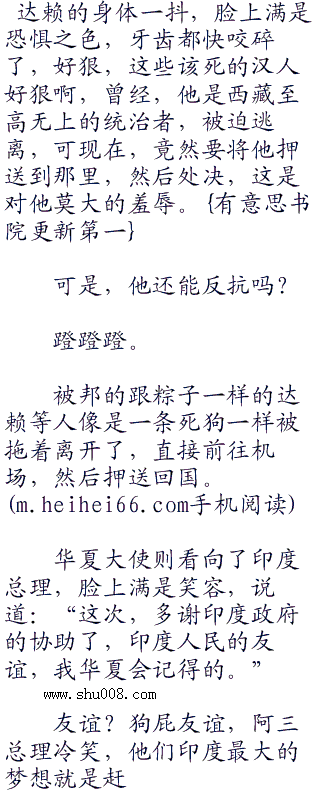 达赖的身体一抖，脸上满是
恐惧之色，牙齿都快咬碎
了，好狠，这些该死的汉人
好狠啊，曾经，他是西藏至
高无上的统治者，被迫逃
离，可现在，竟然要将他押
送到那里，然后处决，这是
对他莫大的羞辱。{有意思书
院更新第一}
可是，他还能反抗吗？
蹬蹬蹬。
被邦的跟粽子一样的达
赖等人像是一条死狗一样被
拖着离开了，直接前往机
场，然后押送回国。
(m.heihei66.com手机阅读)
华夏大使则看向了印度
总理，脸上满是笑容，说
道：“这次，多谢印度政府
的协助了，印度人民的友
谊，我华夏会记得的。”
www.shu008.com
友谊？狗屁友谊，阿三
总理冷笑，他们印度最大的
梦想就是赶